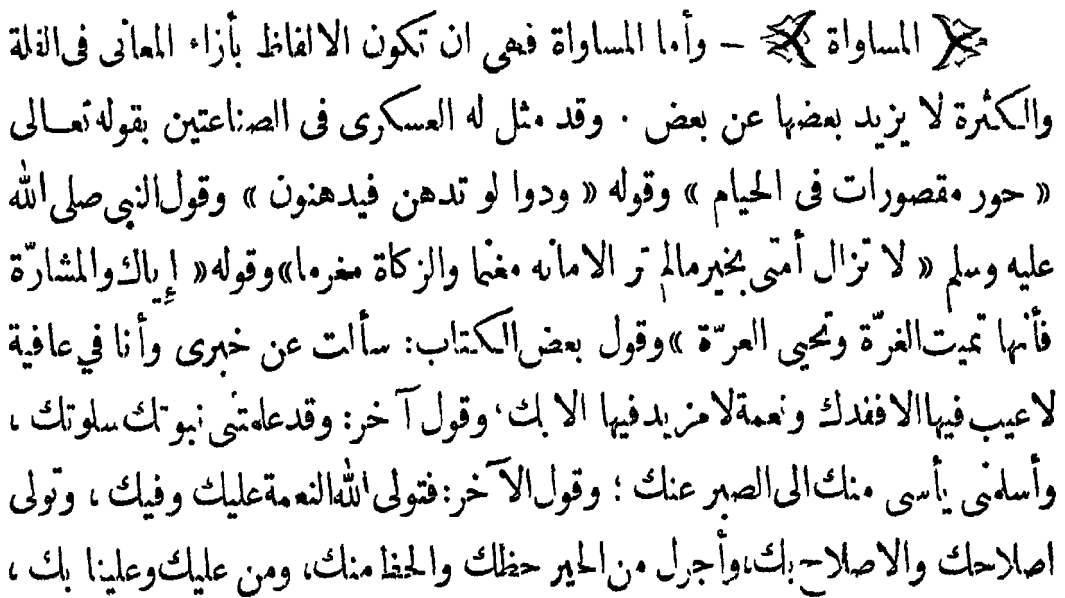 ﴿ المساواة ﴾ – وأما المساواة فهى ان تكون الالفاظ بأزاء المعانى فى القلة
والكثرة لا يزيد بعضها عن بعض . وقد مثل له العسكرى فى الصناعتين بقوله تعالى
« حور مقصورات فى الخيام » وقوله « ودوا لو تدهن فيدهنون » وقول النبى صلى الله
عليه وسلم « لا تزال أمتى بخير مالم تر الامانه مغنما والزكاة مغرما» وقوله« إياك والمشارّة
فأنها تميت الغرّة وتحيى العرّة » وقول بعض الكتاب: سألت عن خبرى وأنا في عافية
لا عيب فيها الا فقدك ونعمة لا مزيد فيها الا بك، وقول آخر: وقد علمتنى نبوتك سلوتك ،
وأسلمنى يأسى منك الى الصبر عنك ؛ وقول الآخر: فتولى الله النعمة عليك وفيك ، وتولى
اصلاحك والاصلاح بك، وأجزل من الخير حظك والحظ منك، ومن عليك وعلينا بك ،